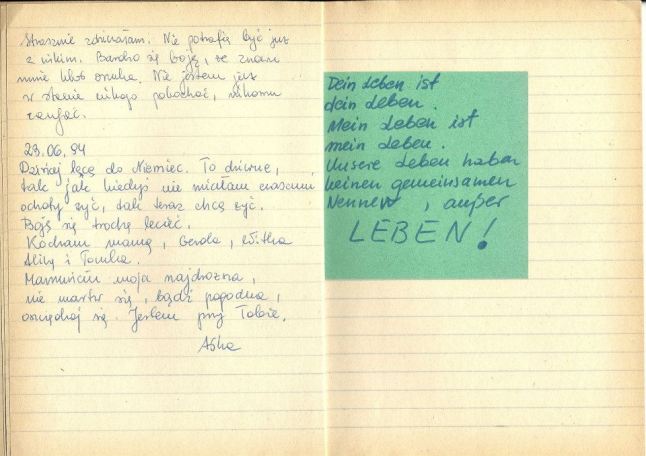 Strasznie zdziczałam. Nie potrafię być już
z nikim. Bardzo się boję, że znam
mnie ktoś szuka. Nie jestem już
w stanie nikogo pokochać, nikomu
zaufać.
23.06.94
Dzisiaj lecę do Niemiec. To dziwne,
tak jak kiedyś nie miałam czasami
ochoty żyć, tak teraz chcę żyć.
Boję się trochę lecieć.
Kocham mamę, Gerda, Witka
Alinę i Tomka.
Mamusiu moja najdroższa,
nie martw się, bądź pogodna,
oszczędzaj się. Jestem przy Tobie.
Aśka
Dein Leben ist
dein Leben.
Mein Leben ist
mein Leben.
Unsere Leben haben
keinen gemeinsamen
Nenner, außer
LEBEN!